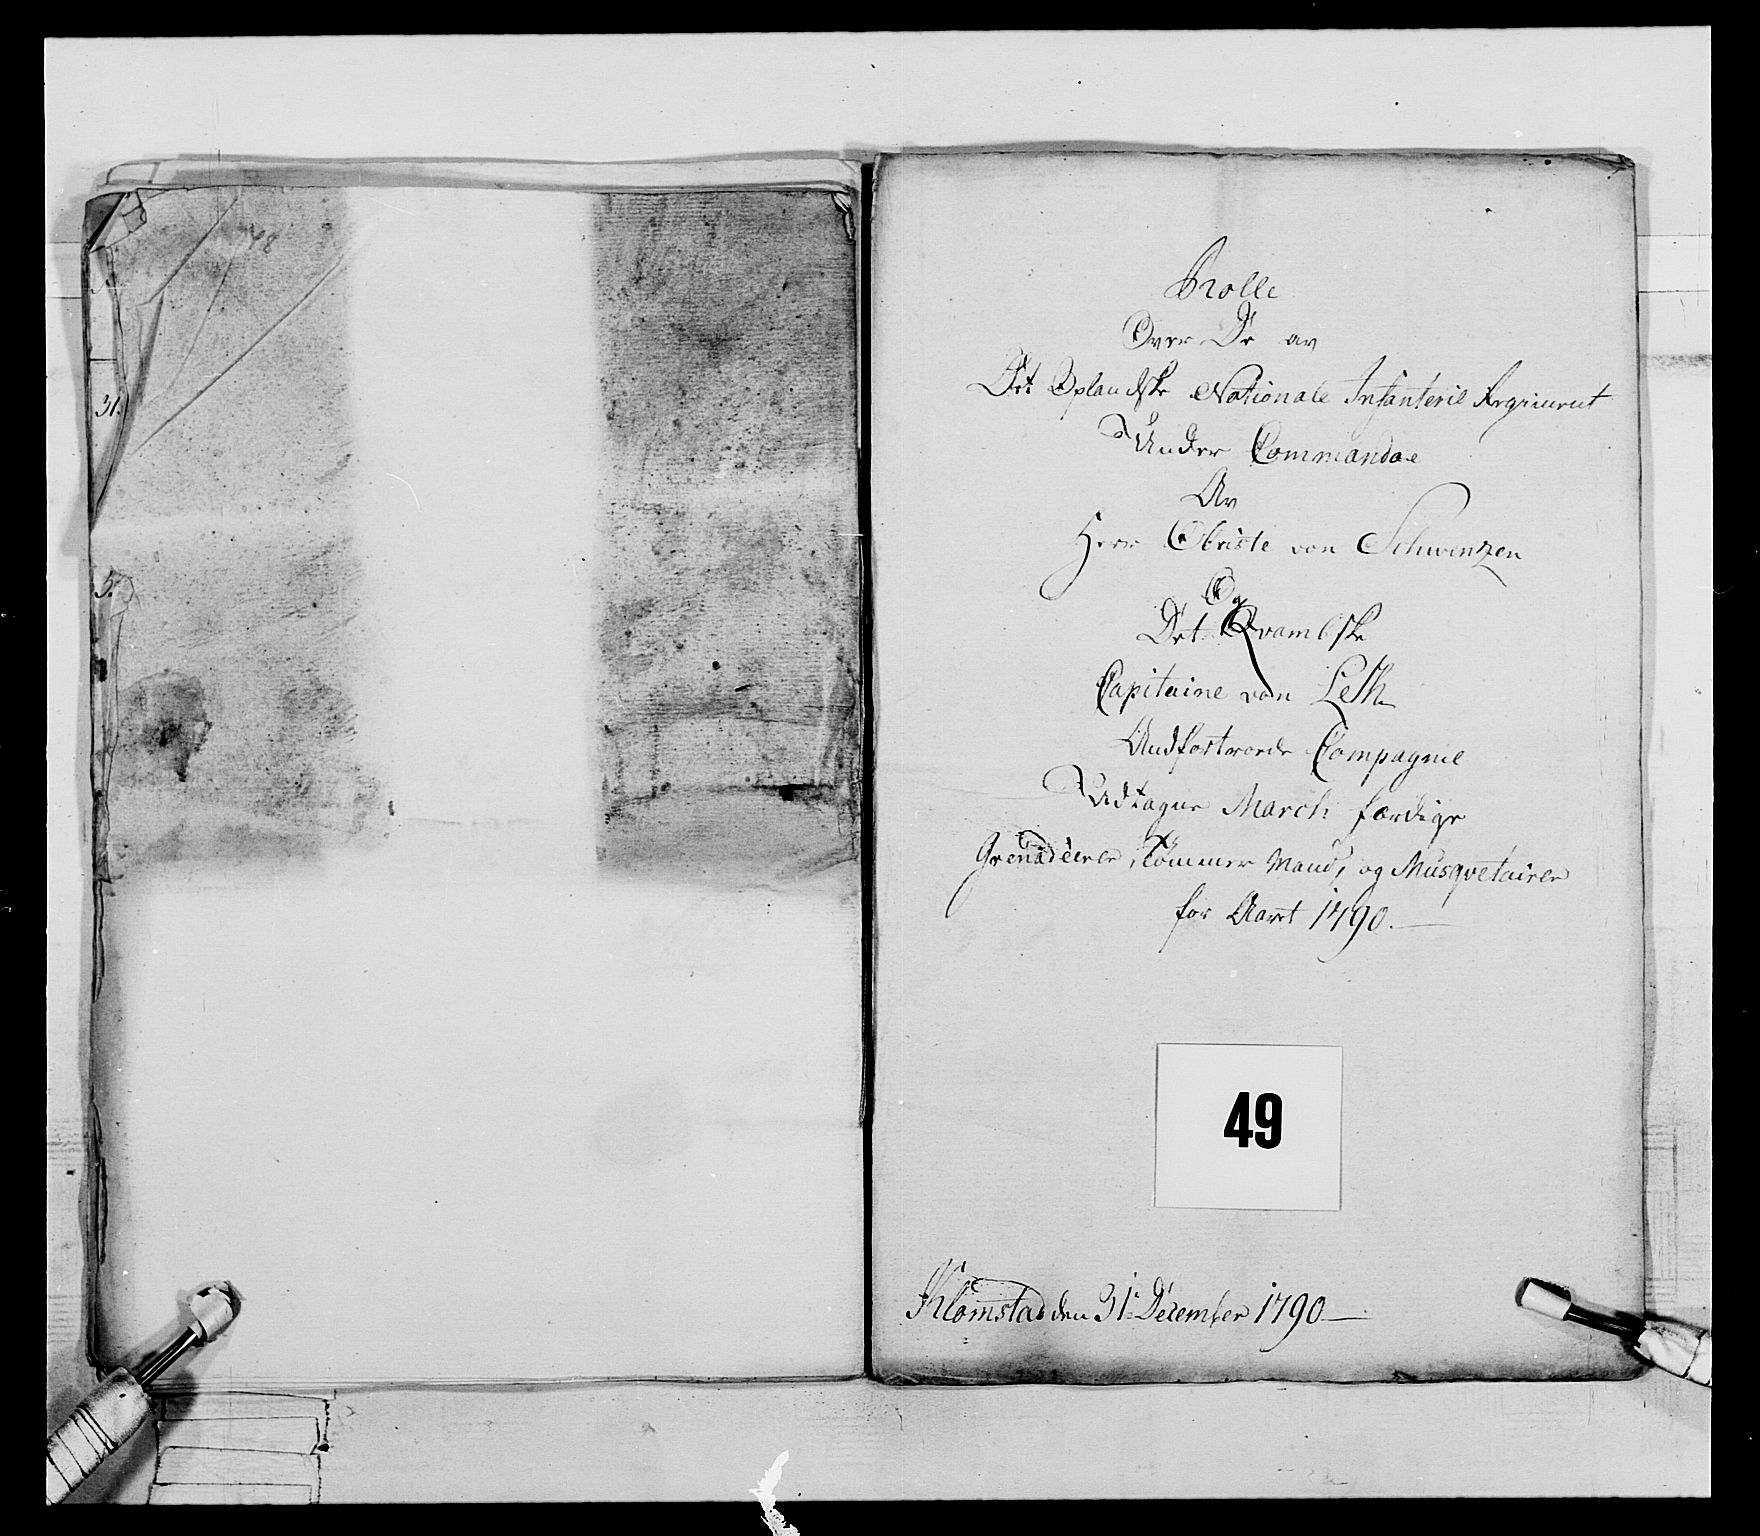 48
31.
5.
Rolle
Over De av
Det Oplandske Nationale Infanterie Regiment
Under Commandoe
Av
Herr Obriste von Schwenzen
Og
Det Qvambske
Capitaine von Leth
Andfortroede Compagnie
Udtagne March færdige
Grenadeerer, Tømmer Mænd, og Musqvetairer
for Aaret 1790.
49
Klomstad den 31t December 1790